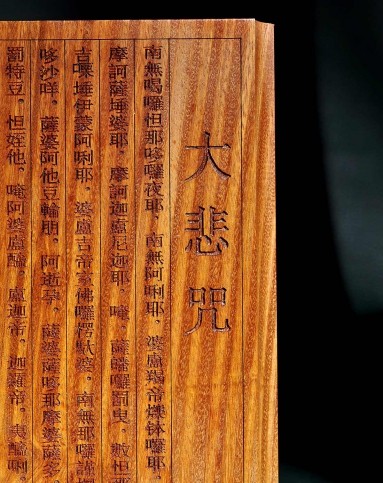 大悲咒
南無喝囉怛那哆囉夜耶。南無阿唎耶。婆盧羯帝爍钵囉耶。
摩訶薩埵婆耶。摩訶迦盧尼迦耶。唵。薩皤囉罰曳。數怛
吉㗚埵伊蒙阿唎耶。婆盧吉帝室佛囉愣馱婆。南無那囉謹
哆沙咩。薩婆阿他豆輸朋。阿逝孕。薩婆薩哆那摩婆薩多。
罰特豆。怛姪他。唵阿婆盧醯。盧迦帝。迦羅帝。夷醯唎。